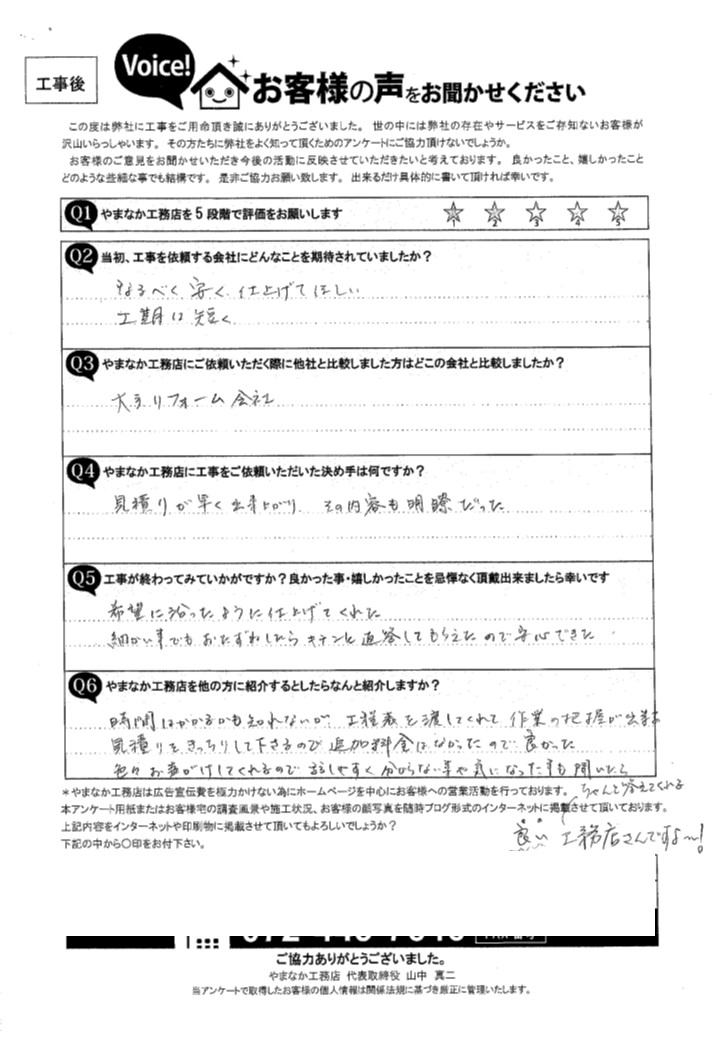 工事後
Voice!
お客様の声をお聞かせください
この度は弊社に工事をご用命頂き誠にありがとうございました。 世の中には弊社の存在やサービスをご存知ないお客様が
沢山いらっしゃいます。 その方たちに弊社をよく知って頂くためのアンケートにご協力頂けないでしょうか。
お客様のご意見をお聞かせいただき今後の活動に反映させていただきたいと考えております。 良かったこと、嬉しかったこと
どのような些細な事でも結構です。 是非ご協力お願い致します。 出来るだけ具体的に書いて頂ければ幸いです。
Q1 やまなか工務店を5段階で評価をお願いします
1 2 3 4 5
Q2 当初、工事を依頼する会社にどんなことを期待されていましたか？
なるべく安く仕上げてほしい
工期は短く
Q3 やまなか工務店にご依頼いただく際に他社と比較しました方はどこの会社と比較しましたか？
大手リフォーム会社
Q4 やまなか工務店に工事をご依頼いただいた決め手は何ですか？
見積りが早く出来上がり その内容も明瞭だった
Q5 工事が終わってみていかがですか？良かった事・嬉しかったことを忌憚なく頂戴出来ましたら幸いです
希望に沿ったように仕上げてくれた
細かい事でもおたずねしたらキチンと返答してもらえたので安心できた
Q6 やまなか工務店を他の方に紹介するとしたらなんと紹介しますか？
時間はかかるかも知れないが 工程表を渡してくれて作業の把握が出来
見積りをきっちりして下さるので追加料金はなかったので良かった
色々お声がけしてくれるので話しやすく分からない事や気になった事も聞いたら
ちゃんと答えてくれる
＊やまなか工務店は広告宣伝費を極力かけない為にホームページを中心にお客様への営業活動を行っております。
本アンケート用紙またはお客様宅の調査風景や施工状況、お客様の顔写真を随時ブログ形式のインターネットに掲載させて頂いております。
上記内容をインターネットや印刷物に掲載させて頂いてもよろしいでしょうか？
良い工務店さんですよ～！
下記の中から○印をお付下さい。
ご協力ありがとうございました。
やまなか工務店 代表取締役 山中 真二
当アンケートで取得したお客様の個人情報は関係法規に基づき厳正に管理いたします。